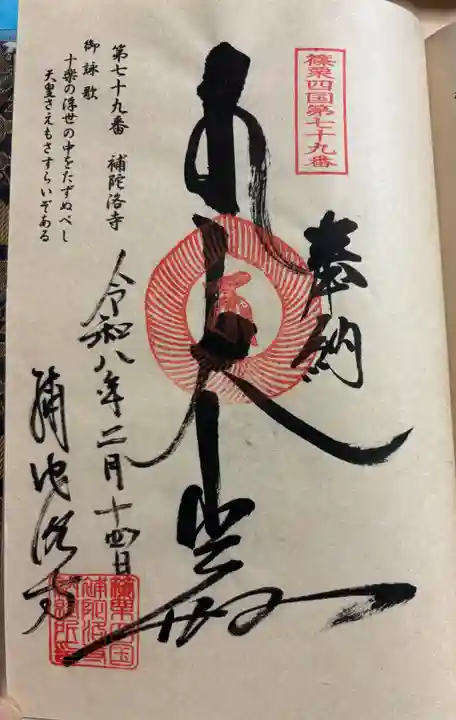 篠栗四国第七十九番
奉納
第七十九番 補陀洛寺
御詠歌
十楽の浮世の中をたずぬべし
天皇さえもさすらいぞある
令和八年二月十四日
補陀洛寺
篠栗四国
補陀洛寺
納経所